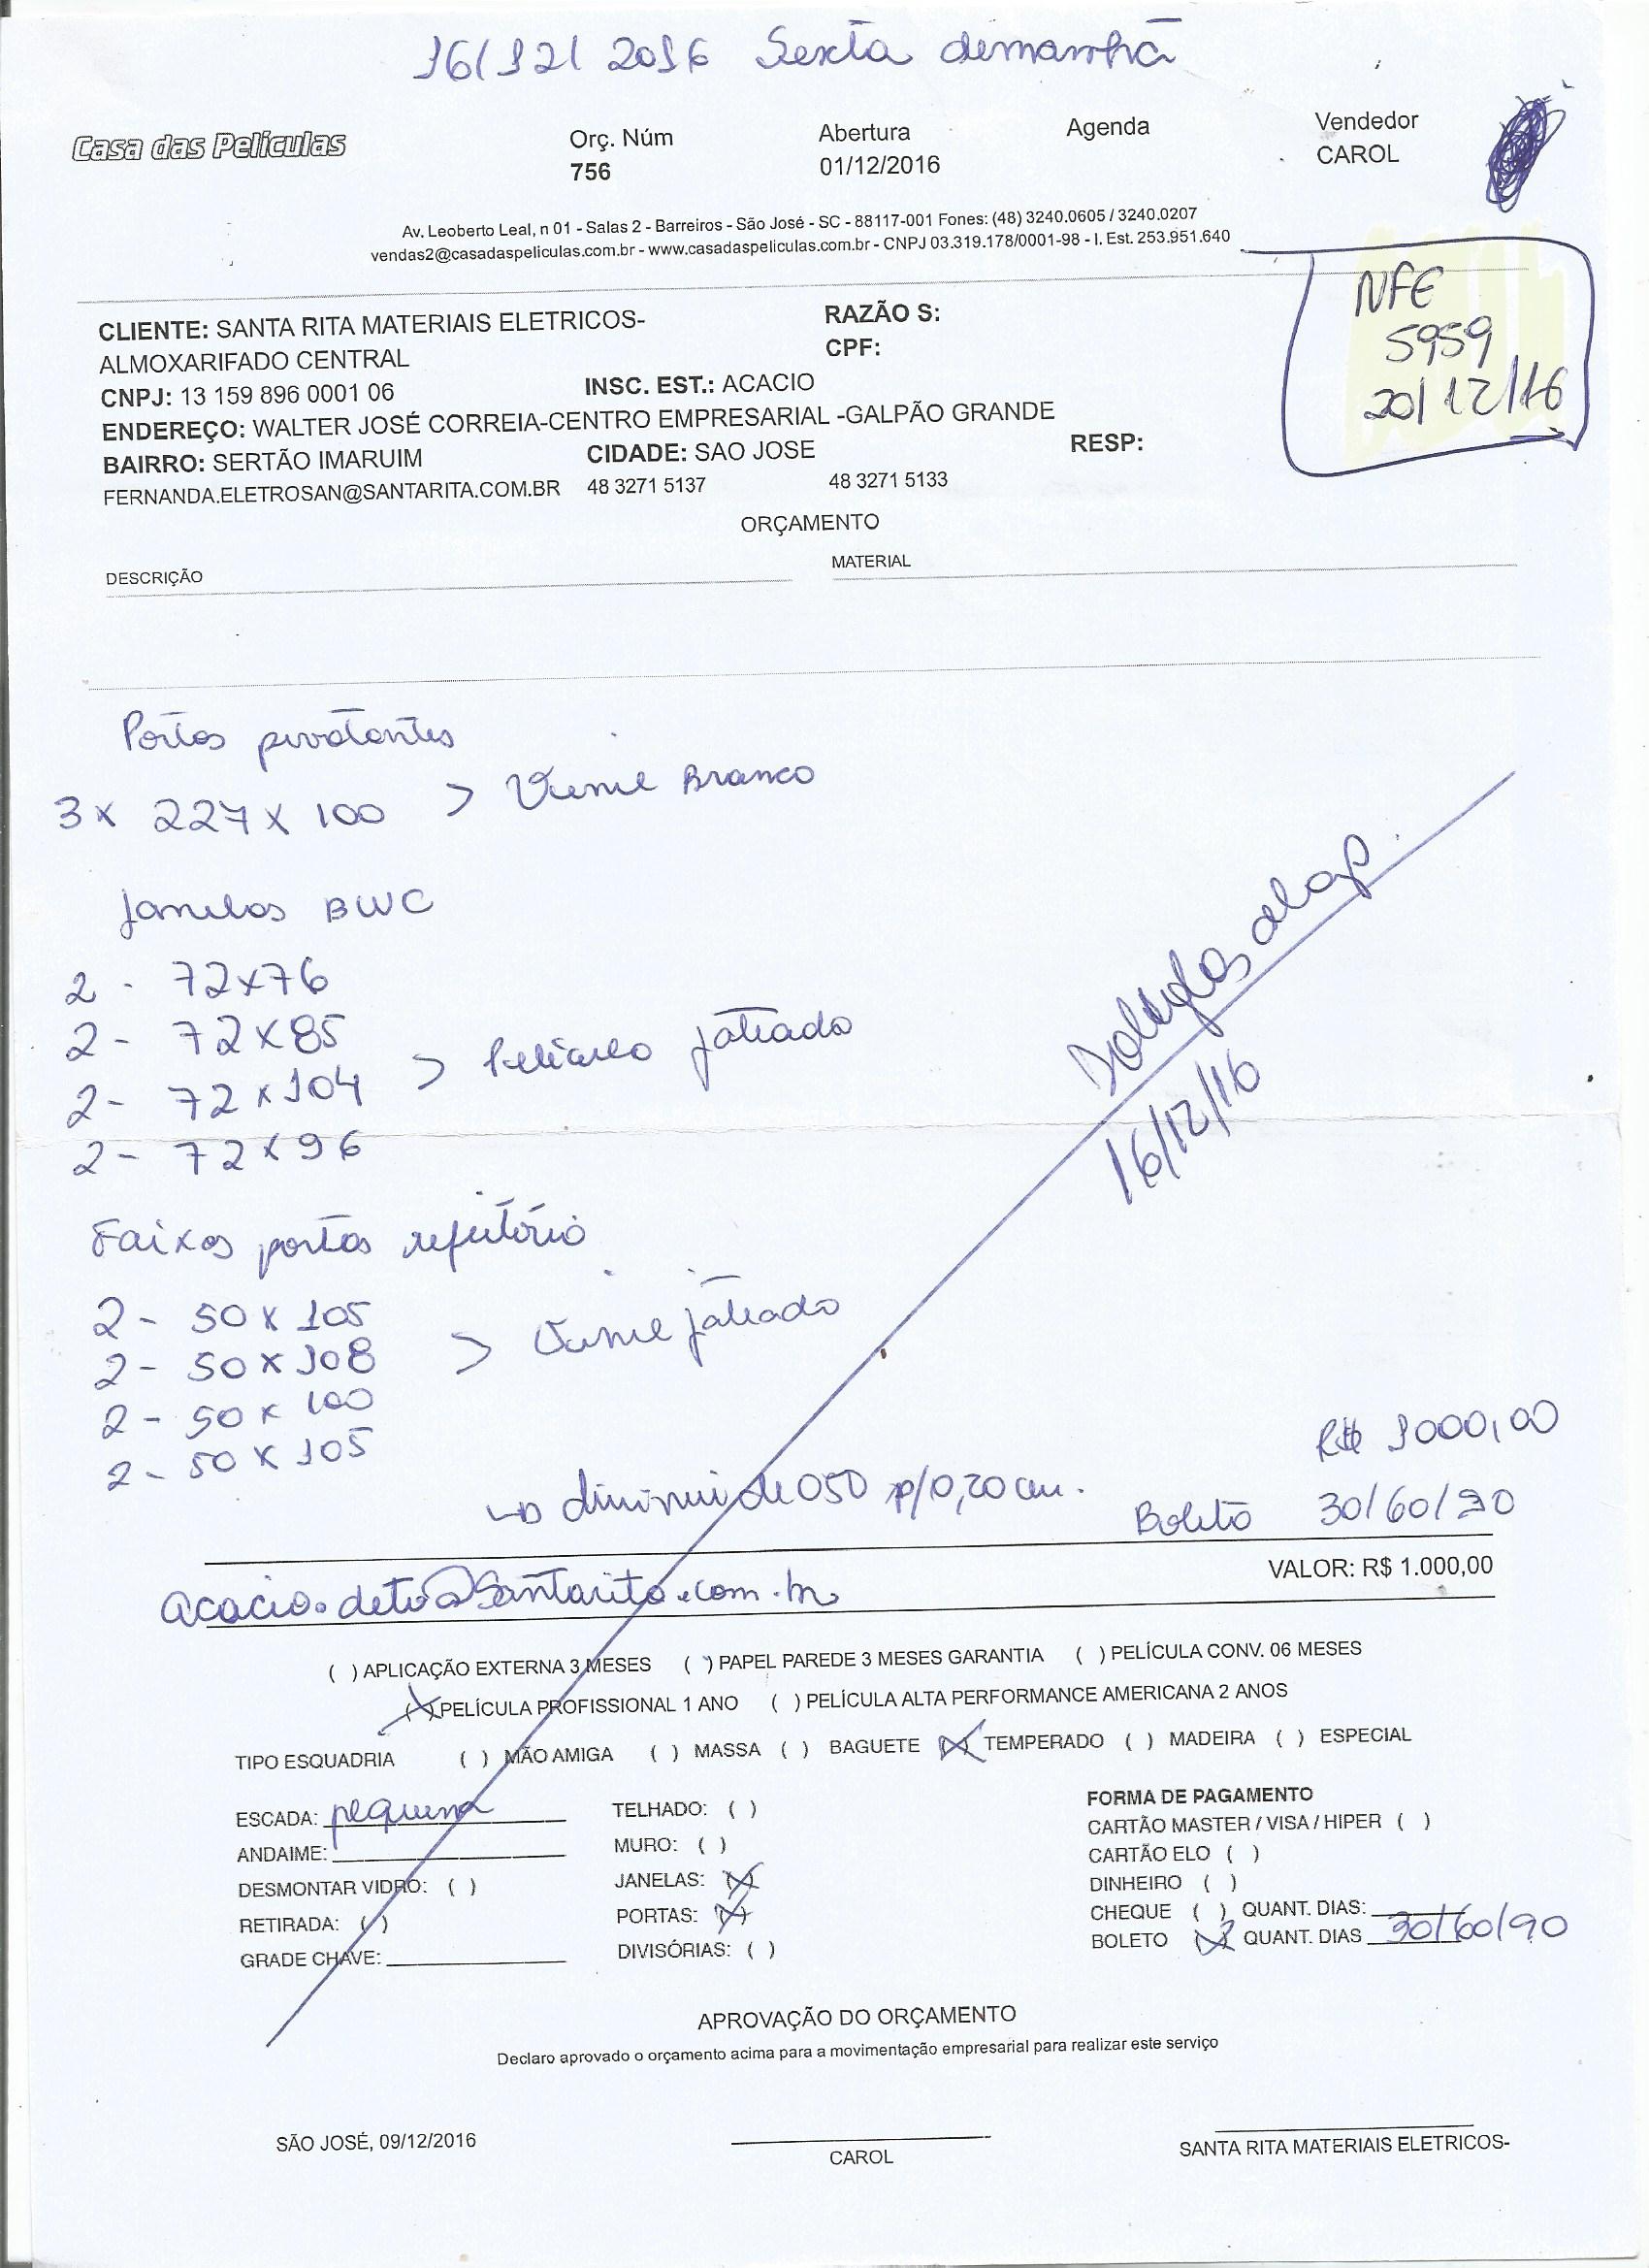 16/12/2016 Sexta demanhã
Casa das Películas
Orç. Núm
756
Abertura
01/12/2016
Agenda
Vendedor
CAROL
Av. Leoberto Leal, n 01 - Salas 2 - Barreiros - São José - SC - 88117-001 Fones: (48) 3240.0605 / 3240.0207
vendas2@casadaspeliculas.com.br - www.casadaspeliculas.com.br - CNPJ 03.319.178/0001-98 - I. Est. 253.951.640
NFE
5959
20/12/16
CLIENTE: SANTA RITA MATERIAIS ELETRICOS-
ALMOXARIFADO CENTRAL
RAZÃO S:
CPF:
CNPJ: 13 159 896 0001 06 INSC. EST.: ACACIO
ENDEREÇO: WALTER JOSÉ CORREIA-CENTRO EMPRESARIAL -GALPÃO GRANDE
BAIRRO: SERTÃO IMARUIM CIDADE: SAO JOSE RESP:
FERNANDA.ELETROSAN@SANTARITA.COM.BR 48 3271 5137 48 3271 5133
ORÇAMENTO
DESCRIÇÃO MATERIAL
Portas pivotantes
3 x 227 x 100 > Vinil Branco
Janelas BWC
2 - 72x76
2 - 72x85
2 - 72x104 > Película jateado
2 - 72x96
16/12/16
Faixas portas refeitório
2 - 50 x 105
2 - 50 x 108 > Vinil jateado
2 - 50 x 100
2 - 50 x 105
R$ 1000,00
diminui de 050 p/0,20 cm.
Boleto 30/60/90
VALOR: R$ 1.000,00
acacio.deto@santarita.com.br
( ) APLICAÇÃO EXTERNA 3 MESES ( ) PAPEL PAREDE 3 MESES GARANTIA ( ) PELÍCULA CONV. 06 MESES
(X) PELÍCULA PROFISSIONAL 1 ANO ( ) PELÍCULA ALTA PERFORMANCE AMERICANA 2 ANOS
TIPO ESQUADRIA ( ) MÃO AMIGA ( ) MASSA ( ) BAGUETE (X) TEMPERADO ( ) MADEIRA ( ) ESPECIAL
ESCADA: pequena
ANDAIME:
DESMONTAR VIDRO: ( )
RETIRADA: ( )
GRADE CHAVE:
TELHADO: ( )
MURO: ( )
JANELAS: (X)
PORTAS: (X)
DIVISÓRIAS: ( )
FORMA DE PAGAMENTO
CARTÃO MASTER / VISA / HIPER ( )
CARTÃO ELO ( )
DINHEIRO ( )
CHEQUE ( ) QUANT. DIAS:
BOLETO (X) QUANT. DIAS 30/60/90
APROVAÇÃO DO ORÇAMENTO
Declaro aprovado o orçamento acima para a movimentação empresarial para realizar este serviço
SÃO JOSÉ, 09/12/2016
CAROL
SANTA RITA MATERIAIS ELETRICOS-